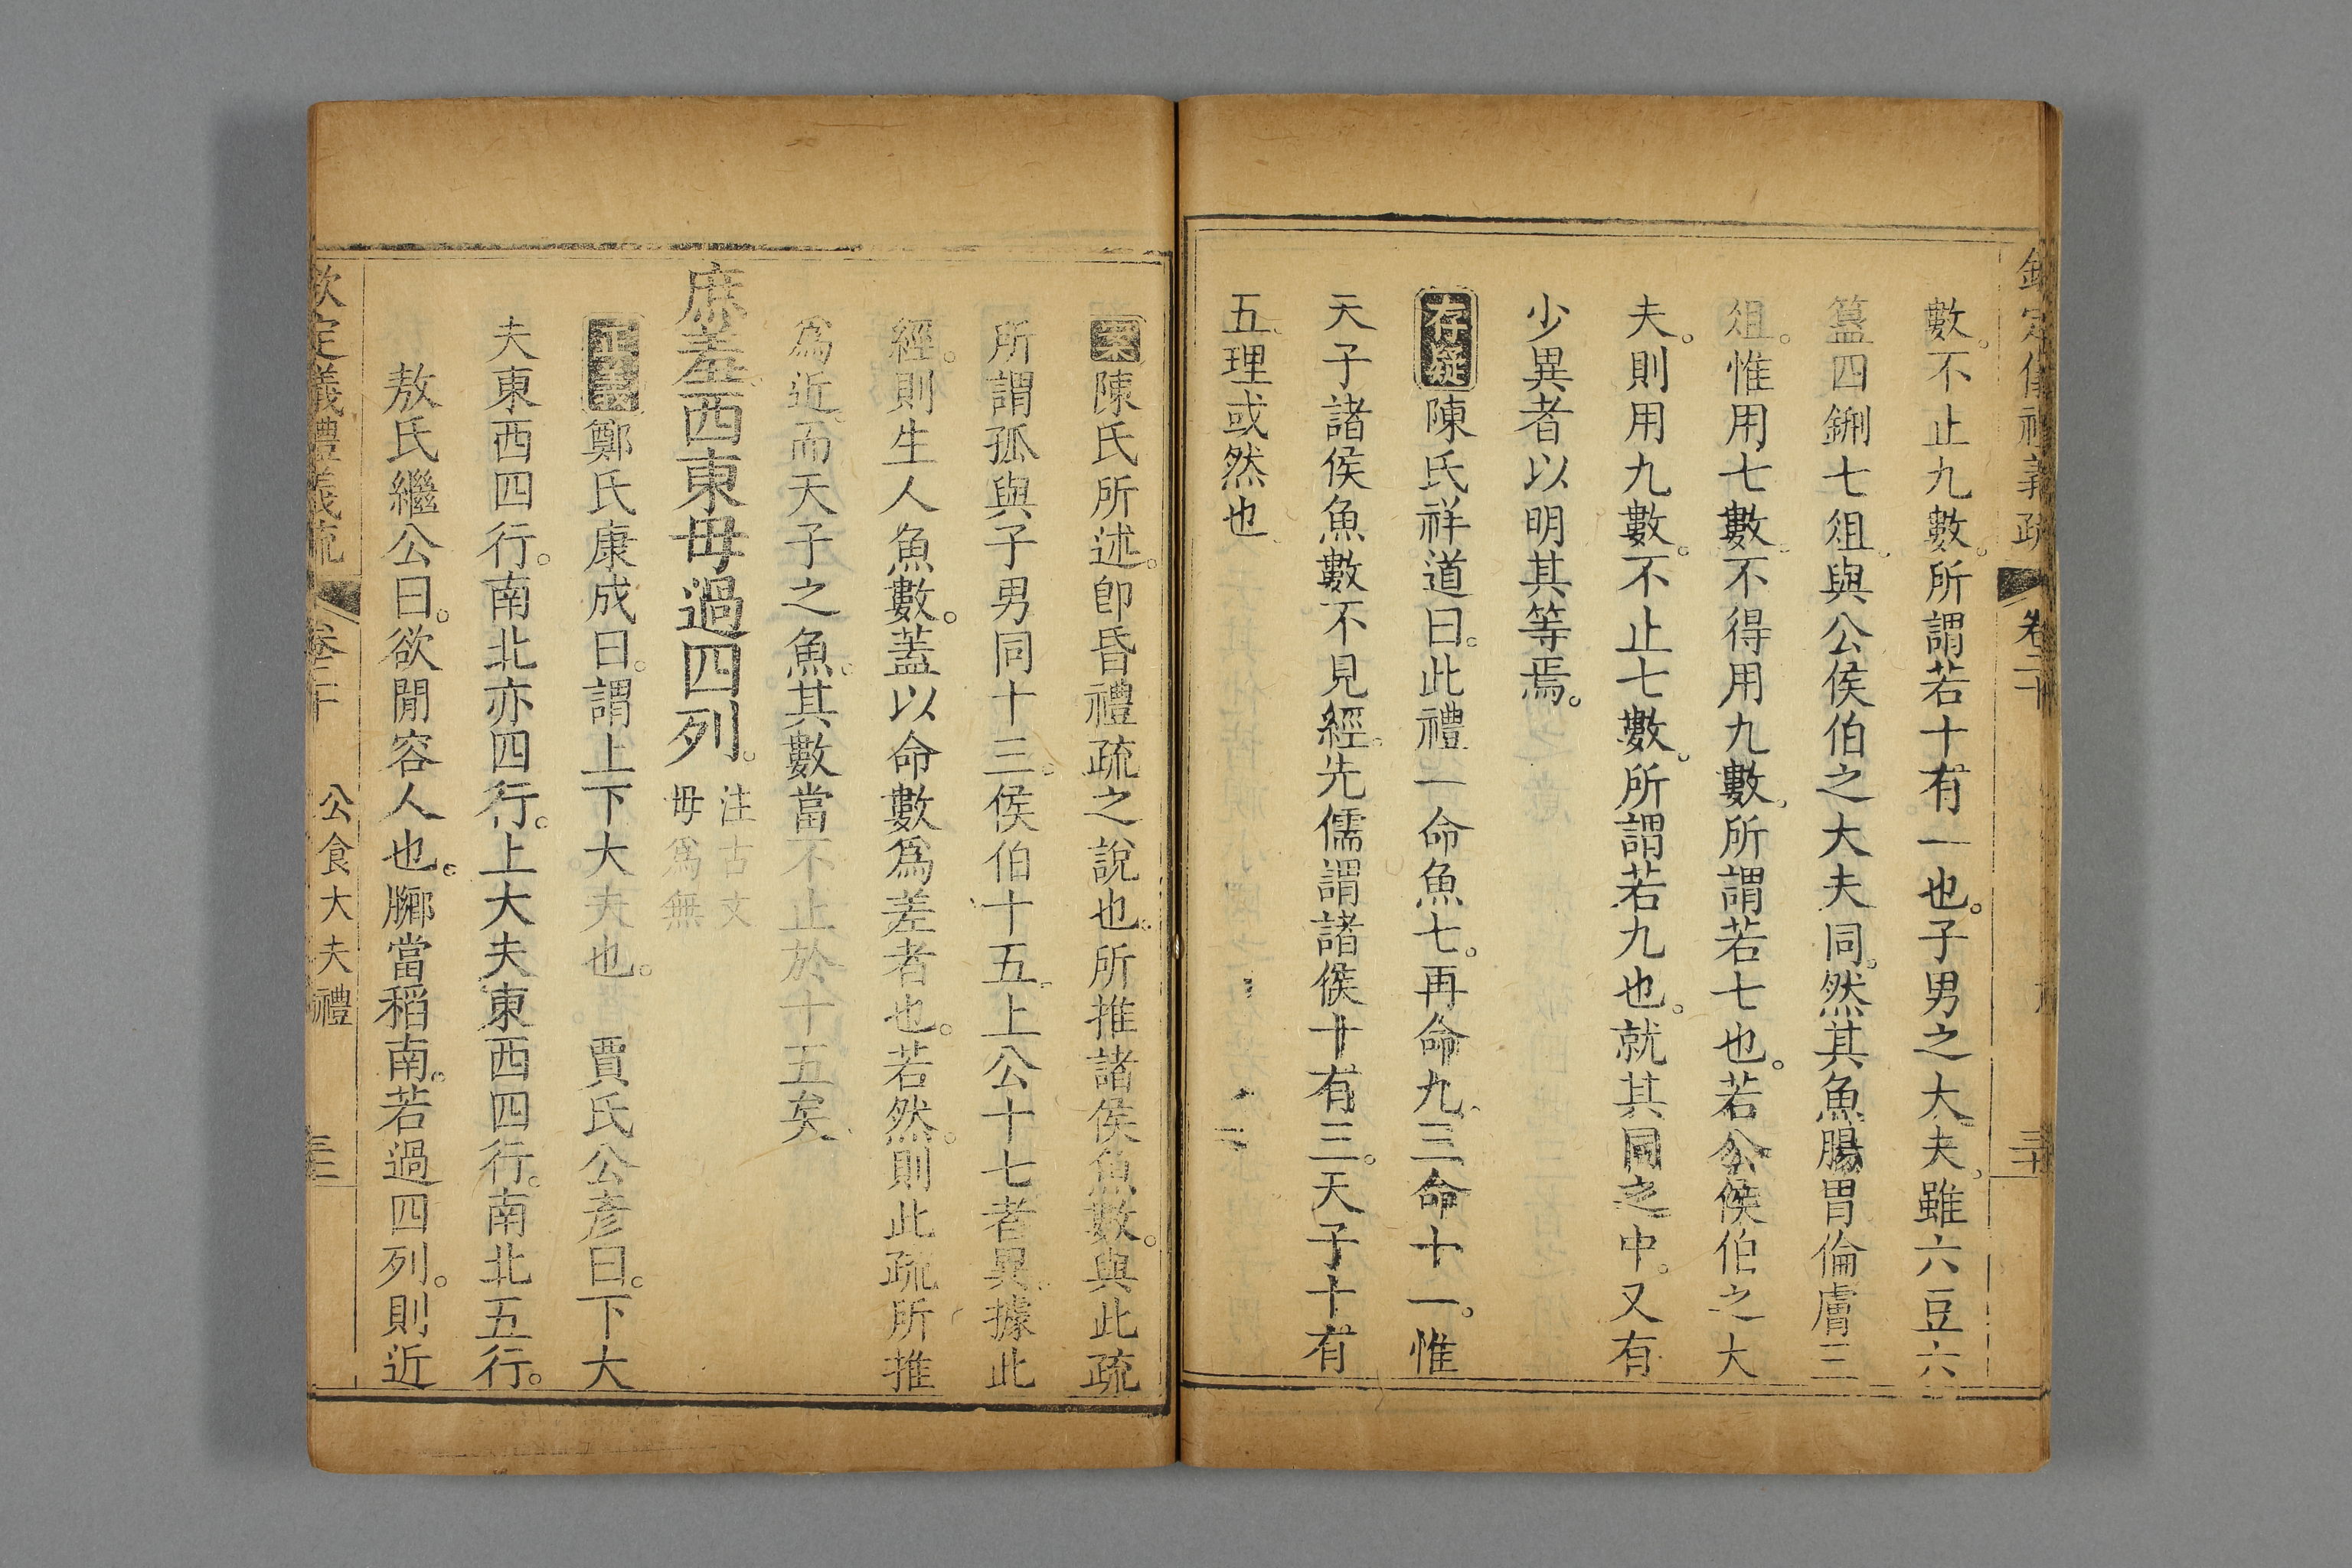 欽定儀禮義疏 卷二十
數。不止九數。所謂若十有一也。子男之大夫。雖六豆六
簋四鉶七俎。與公侯伯之大夫同。然其魚腸胃倫膚三
俎。惟用七數。不得用九數。所謂若七也。若公侯伯之大
夫。則用九數。不止七數。所謂若九也。就其同之中。又有
少異者以明其等焉。
存疑陳氏祥道曰。此禮一命魚七。再命九。三命十一。惟
天子諸侯魚數不見經。先儒謂諸侯十有三。天子十有
五。理或然也。
案陳氏所述。卽昏禮疏之說也。所推諸侯魚數。與此疏
所謂孤與子男同十三。侯伯十五。上公十七者異。據此
經。則生人魚數。蓋以命數爲差者也。若然。則此疏所推
爲近。而天子之魚。其數當不止於十五矣。
庶羞西東毋過四列。注古文毋爲無
正義鄭氏康成曰。謂上下大夫也。 賈氏公彥曰。下大
夫東西四行。南北亦四行。上大夫東西四行。南北五行。
敖氏繼公曰。欲閒容人也。膷當稻南。若過四列。則近
欽定儀禮義疏 卷二十 公食大夫禮